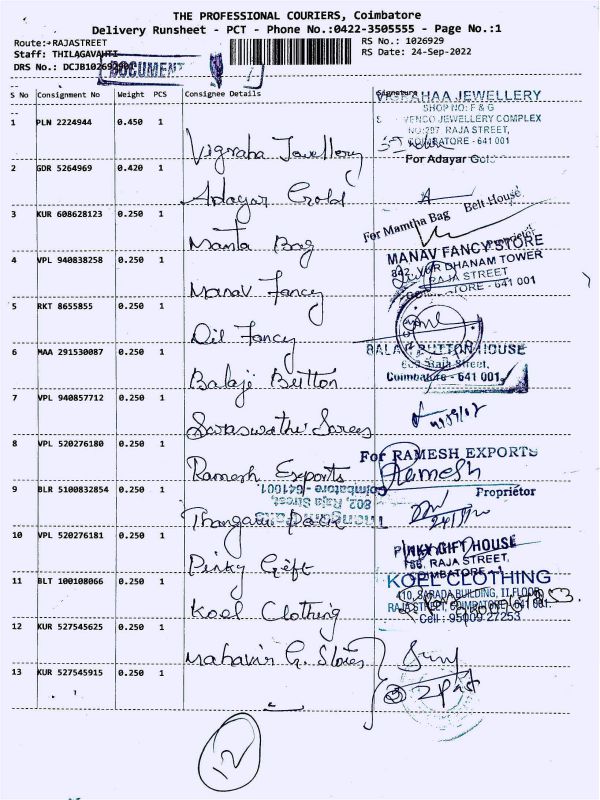 THE PROFESSIONAL COURIERS, Coimbatore
Delivery Runsheet - PCT - Phone No.:0422-3505555 - Page No.:1
Route:-RAJASTREET
RS No.: 1026929
Staff: THILAGAVAHTI
RS Date: 24-Sep-2022
DRS No.: DCJB1026929
DOCUMENT
S No Consignment No Weight PCS Consignee Details Signature
VIGRAHAA JEWELLERY
SHOP NO: F & G
VENCO JEWELLERY COMPLEX
NO:297 RAJA STREET,
COIMBATORE - 641 001
1 PLN 2224944 0.450 1 Vigraha Jewellery
For Adayar Gold
2 GDR 5264969 0.420 1 Adayar Gold
For Mamtha Bag Belt House
Proprietor
3 KUR 608628123 0.250 1 Manta Bag
MANAV FANCY STORE
DHANAM TOWER
RAJA STREET
- 641 001
4 VPL 940838258 0.250 1 Manav Fancy
5 RKT 8655855 0.250 1 Dil Fancy
BALAJI BUTTON HOUSE
Raja Street,
Coimbatore - 641 001
6 MAA 291530087 0.250 1 Balaji Button
7 VPL 940857712 0.250 1 Saraswathi Sarees
For RAMESH EXPORTS
Ramesh
Proprietor
8 VPL 520276180 0.250 1 Ramesh Exports
802, Raja Street,
Coimbatore - 641001
9 BLR 5100832854 0.250 1 Thangam
PINKY GIFT HOUSE
RAJA STREET,
COIMBATORE - 1
10 VPL 520276181 0.250 1 Pinky Gift
KOEL CLOTHING
110, SARADA BUILDING, II FLOOR,
RAJA STREET, COIMBATORE - 641 001.
Cell : 95009 27253
11 BLT 100108066 0.250 1 Koel Clothing
12 KUR 527545625 0.250 1 Mahavir G. Stores
13 KUR 527545915 0.250 1
12